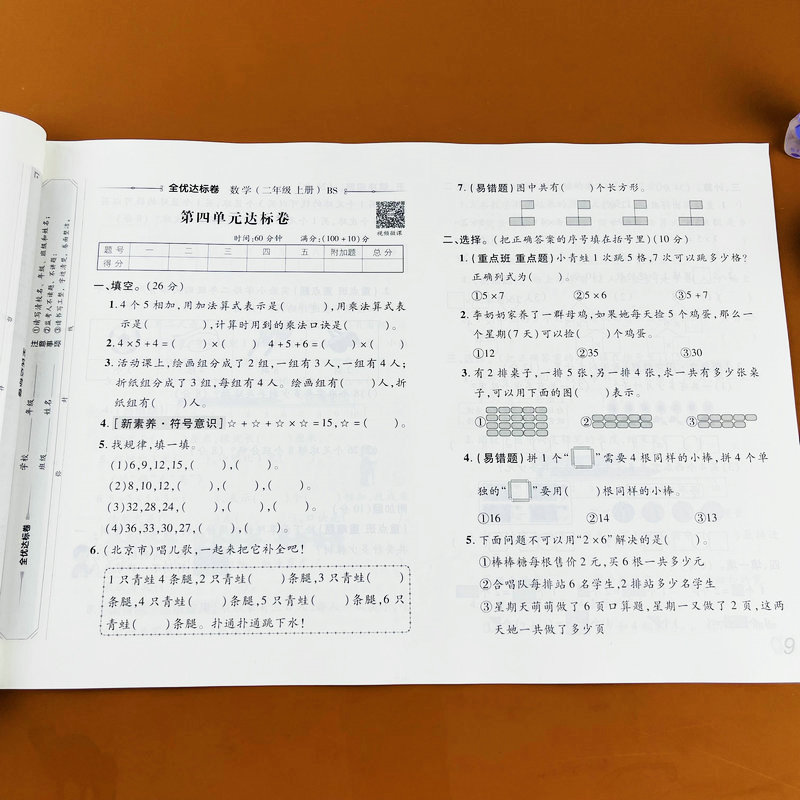 全优达标卷 数学(二年级 上册) BS
第四单元达标卷
视频微课
时间:60分钟 满分:(100+10)分
题号 一 二 三 四 五 附加题 总分
得分
一、填空。(26分)
1.4个5相加,用加法算式表示是( ),用乘法算式表
示是( ),计算时用到的乘法口诀是( )。
2.4×5+4=( )×( ) 4+5×6=( )×( )
3.活动课上,绘画组分成了2组,一组有3人,一组有4人;
折纸组分成了3组,每组有4人。绘画组有( )人,折
纸组有( )人。
4.[新素养·符号意识]☆+☆+☆×☆=15,☆=( )。
5.找规律,填一填。
(1)6,9,12,15,( ),( )。
(2)8,10,12,( ),( ),( )。
(3)32,28,24,( ),( ),( )。
(4)36,33,30,27,( ),( )。
6.(北京市)唱儿歌,一起来把它补全吧!
1只青蛙4条腿,2只青蛙( )条腿,3只青蛙( )
条腿,4只青蛙( )条腿,5只青蛙( )条腿,6只
青蛙( )条腿。扑通扑通跳下水!
7.(易错题)图中共有( )个长方形。
二、选择。(把正确答案的序号填在括号里)(10分)
1.(重点班 重点题)小青蛙1次跳5格,7次可以跳多少格?
正确列式为( )。
①5×7 ②5×6 ③5+7
2.李奶奶家养了一群母鸡,如果她每天捡5个鸡蛋,那么一
个星期(7天)可以捡( )个鸡蛋。
①12 ②35 ③30
3.有2排桌子,一排5张,另一排4张,求一共有多少张桌
子,可以用下面的图( )表示。
① ② ③
4.(易错题)拼1个“ ”需要4根同样的小棒,拼4个单
独的“ ”要用( )根同样的小棒。
①16 ②14 ③13
5.下面问题不可以用“2×6”解决的是( )。
①棒棒糖每根售价2元,买6根一共多少元
②合唱队每排站6名学生,2排站多少名学生
③星期天萌萌做了6页口算题,星期一又做了2页,这两
天她一共做了多少页
9
注意事项
①请写清校名、年级、班级和姓名;
②监考人不读题,不讲题;
③请书写工整,字迹清楚,卷面整洁。
学校
年级
班级
姓名
全优达标卷